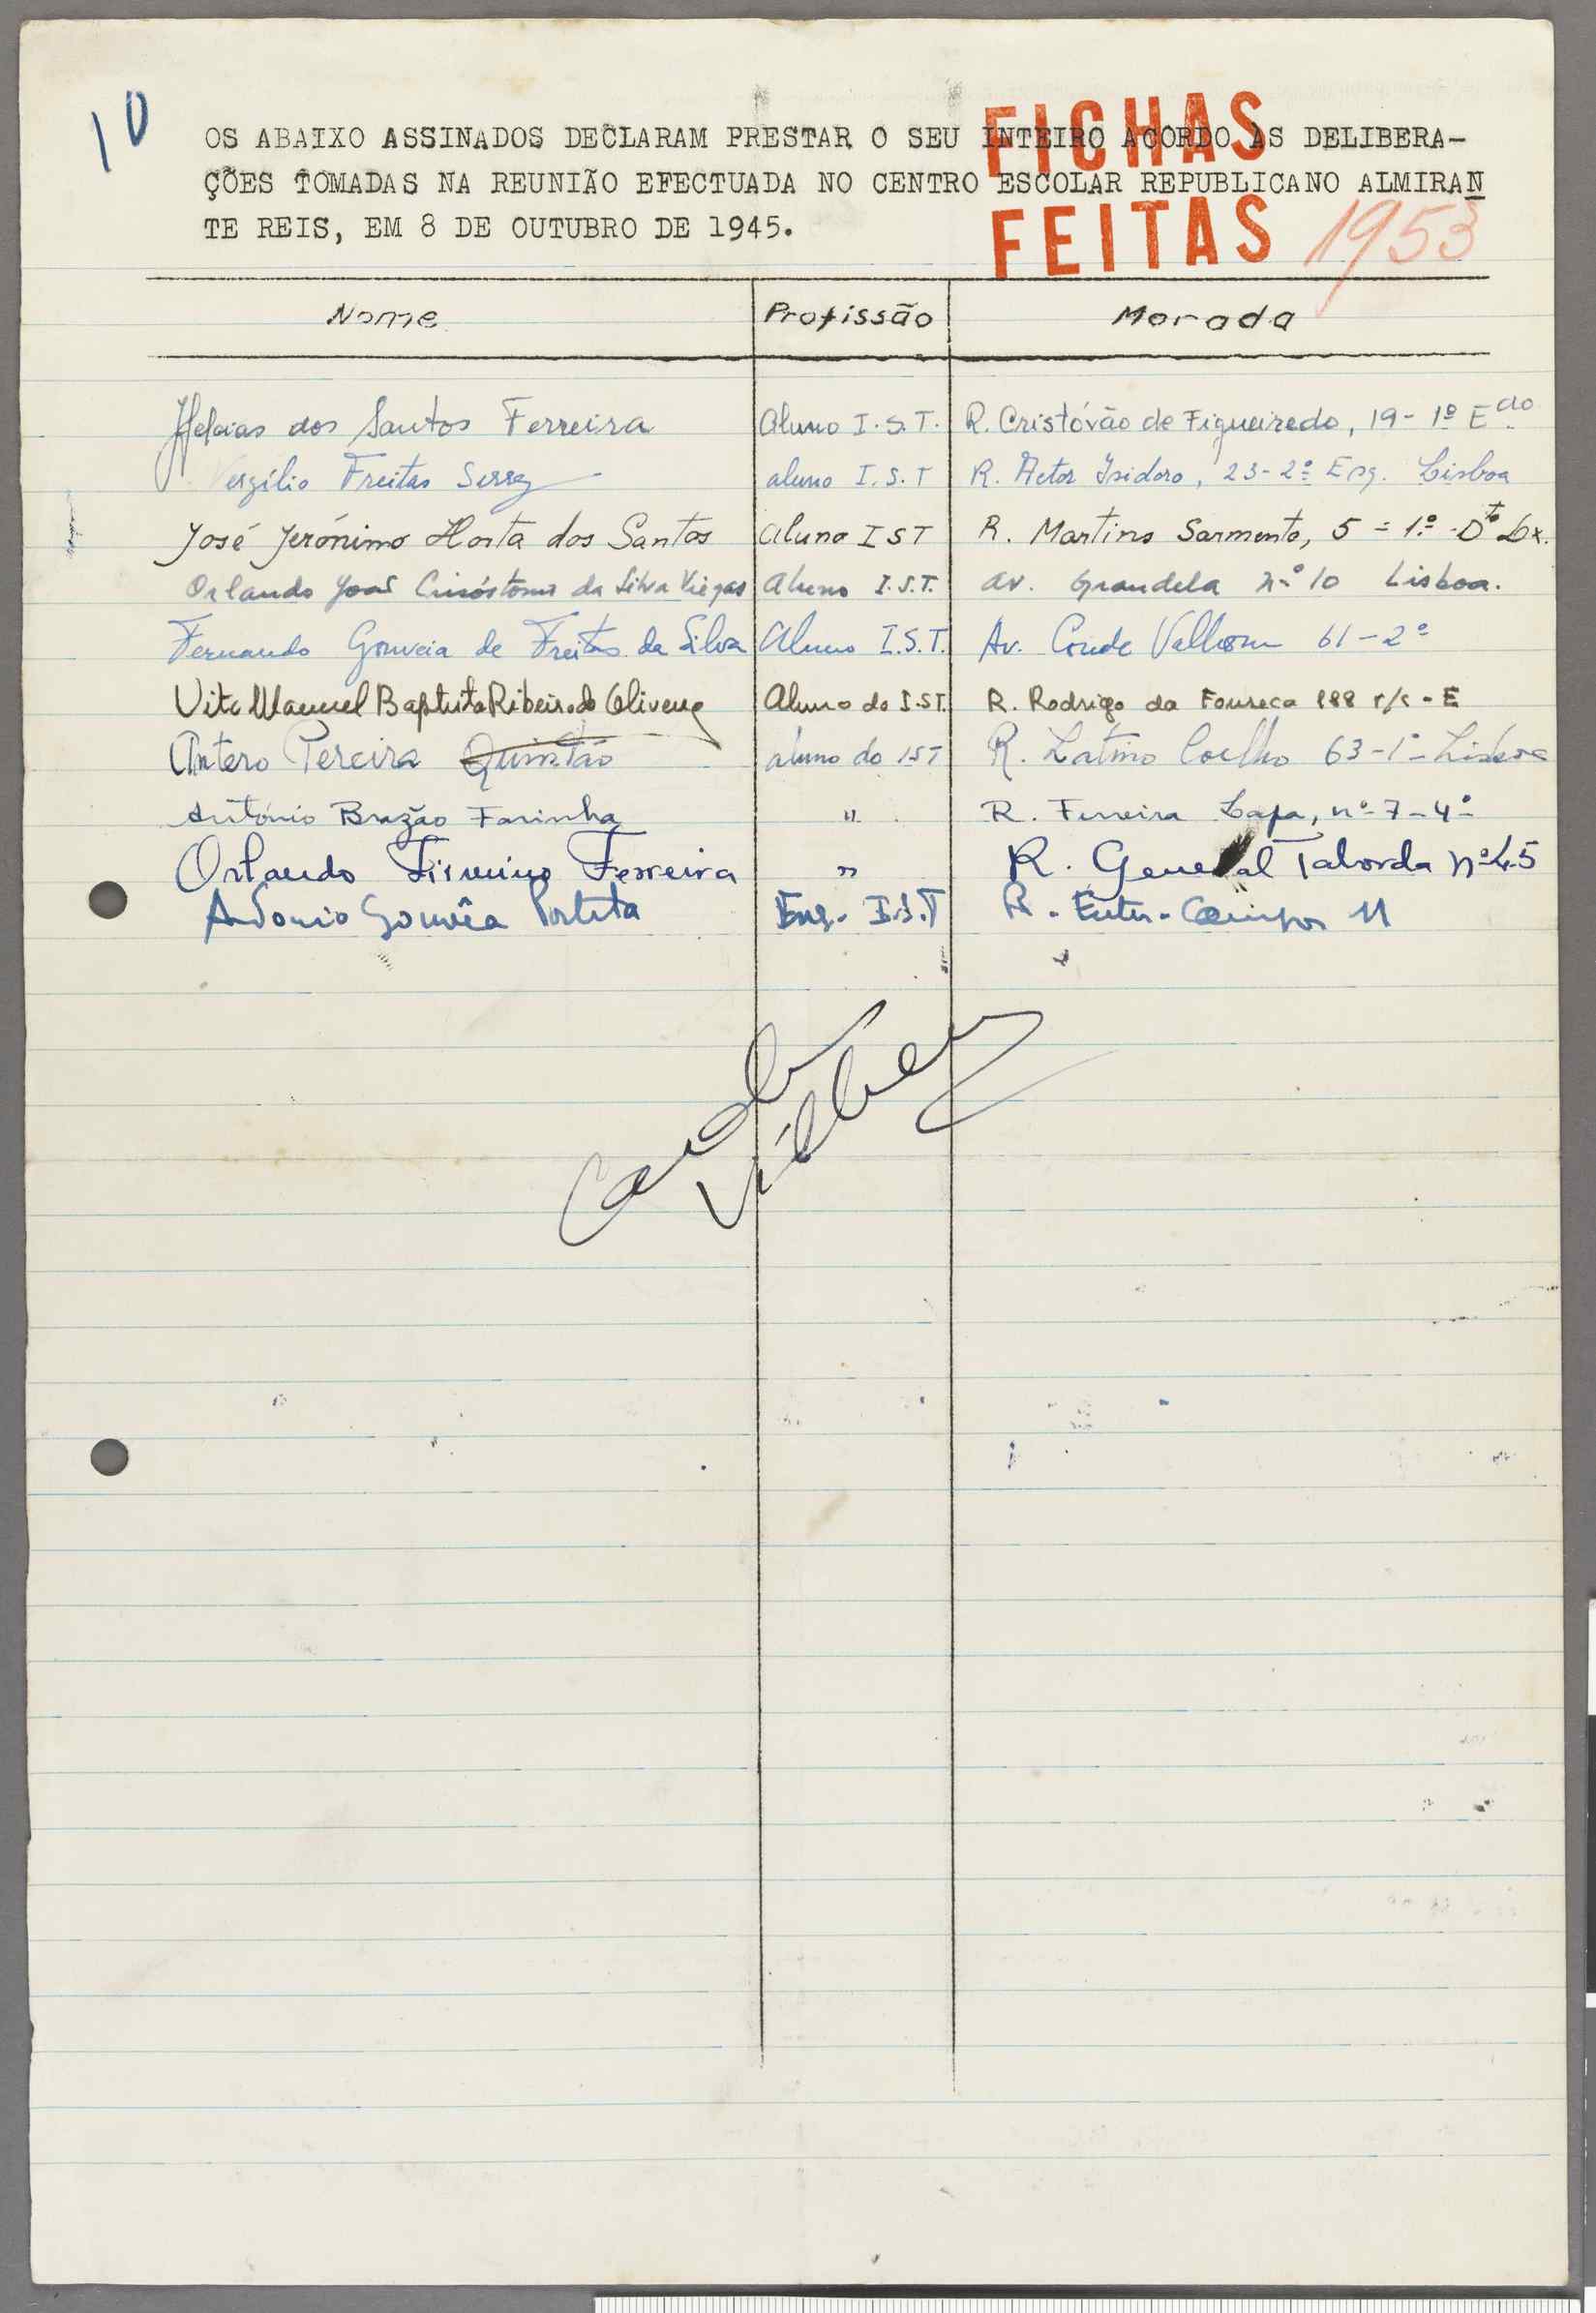 10
FICHAS
FEITAS 1953
OS ABAIXO ASSINADOS DECLARAM PRESTAR O SEU INTEIRO ACORDO ÀS DELIBERA-
ÇÕES TOMADAS NA REUNIÃO EFECTUADA NO CENTRO ESCOLAR REPUBLICANO ALMIRAN
TE REIS, EM 8 DE OUTUBRO DE 1945.
Nome Profissão Morada
dos Santos Ferreira Aluno I.S.T. R. Cristóvão de Figueiredo, 19-1º Edo
Vergílio Freitas Serra aluno I.S.T R. Actor Isidoro, 23-2º Esq. Lisboa
José Jerónimo Horta dos Santos Aluno IST R. Martins Sarmento, 5=1º-Dto Lx.
Orlando José Crisóstomo da Silva Viegas Aluno I.S.T. Av. Grandela nº 10 Lisboa.
Fernando Gouveia de Freitas da Silva Aluno I.S.T. Av. Conde Valbom 61-2º
Vito Manuel Baptista Ribeiro de Oliveira Aluno do I.S.T. R. Rodrigo da Fonseca 188 r/c-E
Antero Pereira Quintão aluno do IST R. Latino Coelho 63-1º-Lisboa
António Brazão Farinha " R. Ferreira Lapa, nº-7-4º
Orlando Firmino Ferreira " R. General Taborda nº 45
António Gouvêa Portela Eng. I.S.T R. Entre-Campos 11